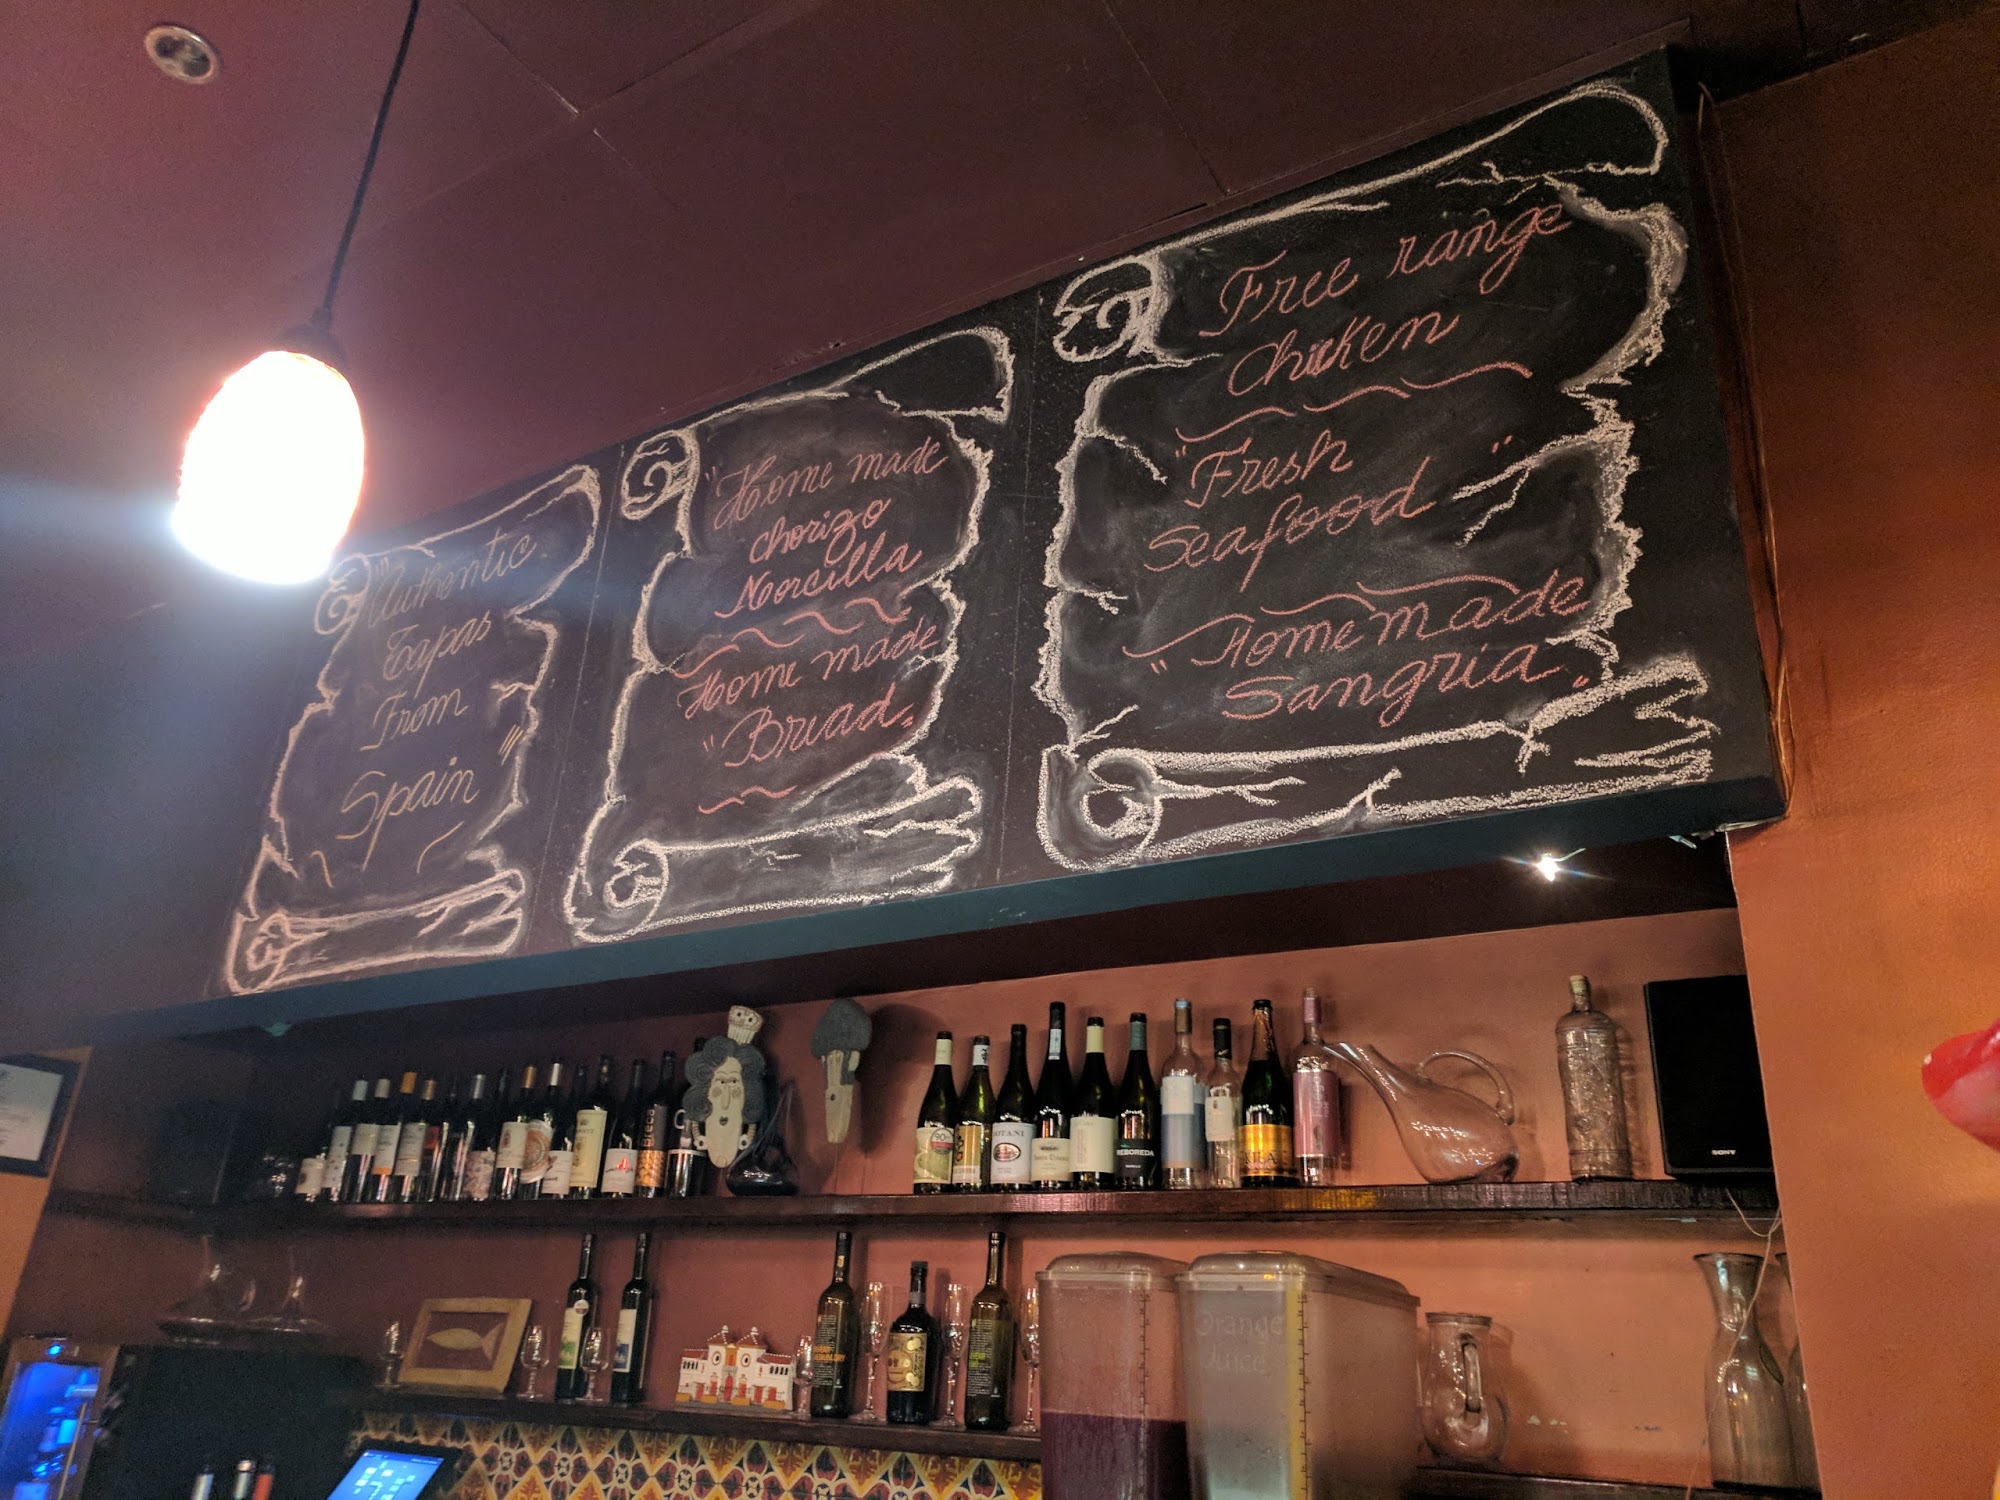 "Authentic
Tapas
From
Spain"
"Home made
chorizo
Norcilla
Home made
"Bread"
Free range
Chicken
"Fresh
Seafood"
"Homemade
Sangria"
OTANI
REBOREDA
SONY
Orange
Juice